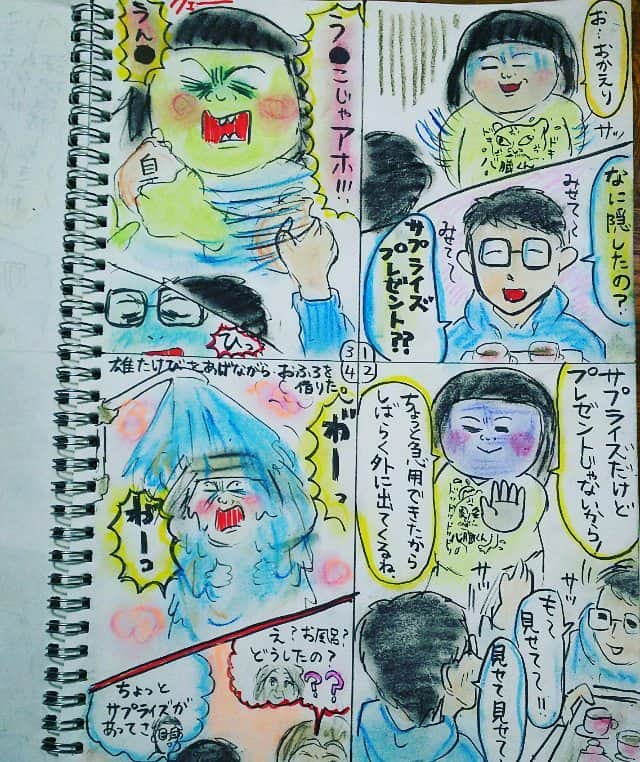 お…おかえり
サッ
なに隠したの?
みせて〜
みせて〜
サプライズ
プレゼント??
1
サプライズだけど
プレゼントじゃないから!
ちょっと急用できたから
しばらく外に出てくるね。
サッ
サッ
も〜
見せて〜!!
見せて見せて〜
2
う●こじゃアホ!!!
うん●
自
ひっ
3
雄たけびをあげながら、おふろを
借りた。
がーっ
がーっ
え?お風呂?
どうしたの?
??
ちょっと
サプライズが
あってさ
4